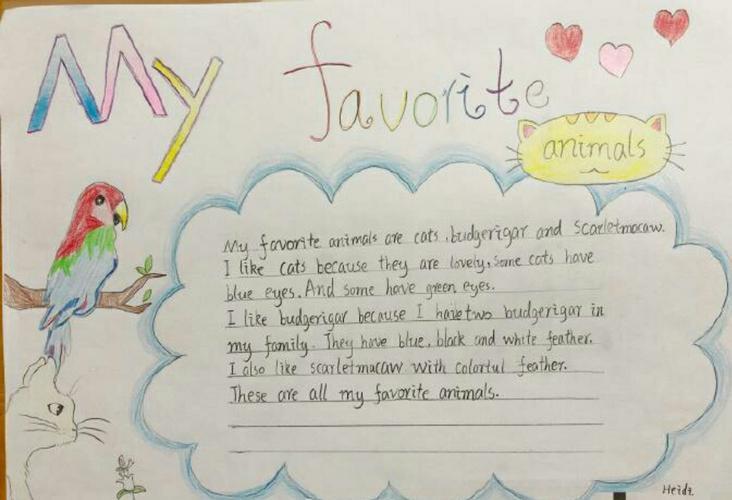 My favorite
animals
My favorite animals are cats, budgerigar and scarletmacaw.
I like cats because they are lovely, some cats have
blue eyes. And some have green eyes.
I like budgerigar because I have two budgerigar in
my family. They have blue, black and white feather.
I also like scarletmacaw with colorful feather.
These are all my favorite animals.
Heidi